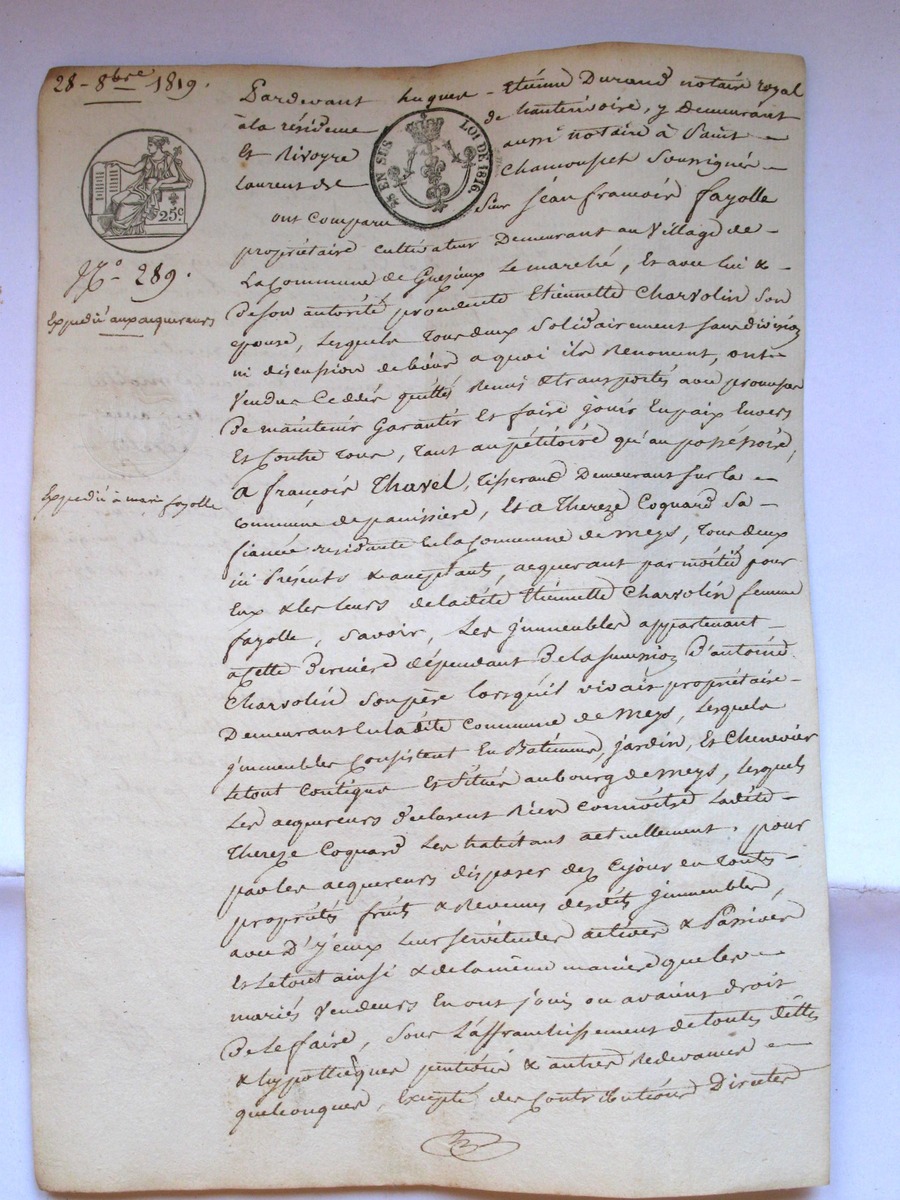 28 - 8bre 1819.
Pardevant hugues - Etiénne Durand notaire royal
à la résidence de hauterivoire, y Demeurant
Et Rivoyre aussi notaire à Saint -
Laurent de Chamousset Soussignés -
25 EN SUS
LOI DE 1816.
25c
ont comparu Sieur Jean francois fayolle
propriétaire cultivateur Demeurant au Village de -
La Commune de Grésieux Le marché, Et avec lui &
De son autorité procedente Etiennette Charvolin son
epouse, Lesquels Tous deux Solidairement sans division
ni discussion de biens a quoi ils Renoncent, ont -
Vendus Cédés quittés Remis & transportés avec promesse
De maintenir Garantir Et faire jouir En paix Envers
Et Contre Tous, Tant au pétitoire qu'au posséssoire,
N.o 289.
Expedié aux acquereurs
Expedié à marie fayolle
a francois Thavel, tisserand Demeurant sur la -
Commune de panissiere, Et a Thereze Coquard sa
fiancée residante En la Commune de meys, Tous deux
ici Présents & acceptants, acquerant par moitié pour
Eux & les leurs de ladite Etiénnette Charvolin femme
fayolle, Savoir, Les jmmeubles appartenant -
a cette Derniere dépendant De la succession D'antoine
Charvolin son père lorsqu'il vivait propriétaire -
Demeurant En la dite Commune de meys, Lesquels
jmmeubles Consistent En Batiments, jardin, Et Chenevier
Le tout Contigus Et Situés au bourg de meys, Lesquels
Les acquereurs declarent Bien Connoitre Ladite -
Thereze Coquard Les habitant actuellement. pour
par les acquereurs disposer dez Cejour en Toute -
propriétés fruits & Revenus desdits jmmeubles,
avec D'yceux Leurs servitudes actives & Passives
Et Le tout ainsi & de la même maniere que les -
mariés Vendeurs En ont joui ou avaient droit
De le faire, Sous L'affranchissement de toutes dettes
& hypothèques pentions & autres Redevances -
quelconques, Excepté des Contributions Directes